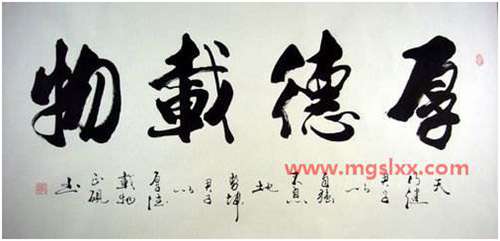 厚德載物
www.mgslxx.com
天
行健
君子
以
自強
不息
地
勢坤
君子
以
厚德
載物
正硯
书